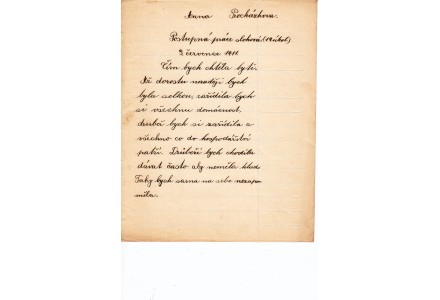 Anna Procházkova.
Postupná práce slohová (12 úkol)
2 července 1911
Čím bych chtěla býti.
Až dorostu nejraději bych
byla selkou, zařídila bych
si všechnu domácnost,
drubů bych si zařídila a
všechno co do hospodářství
patří. Drůbeži bych chodila
dávat často aby neměla hlad
Taky bych sama na sebe nezapo-
měla.